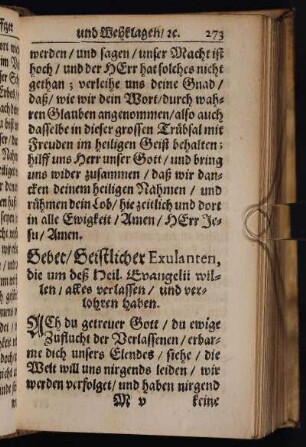 und Wehklagen/ ꝛc. 273
werden/ und sagen/ unser Macht ist
hoch/ und der HErr hat solches nicht
gethan; verleihe uns deine Gnad/
daß/ wie wir dein Wort/ durch wah-
ren Glauben angenommen/ also auch
dasselbe in dieser grossen Trübsal mit
Freuden im heiligen Geist behalten:
hilff uns Herr unser Gott/ und bring
uns wider zusammen/ daß wir dan-
cken deinem heiligen Nahmen/ und
rühmen dein Lob/ hie zeitlich und dort
in alle Ewigkeit/ Amen/ HErr Je-
su/ Amen.
Gebet/ Geistlicher Exulanten,
die um deß Heil. Evangelii wil-
len/ alles verlassen/ und ver-
lohren haben.
ACh du getreuer Gott/ du ewige
Zuflucht der Verlassenen/ erbar-
me dich unsers Elendes/ siehe/ die
Welt will uns nirgends leiden/ wir
werden verfolget/ und haben nirgend
M v keine